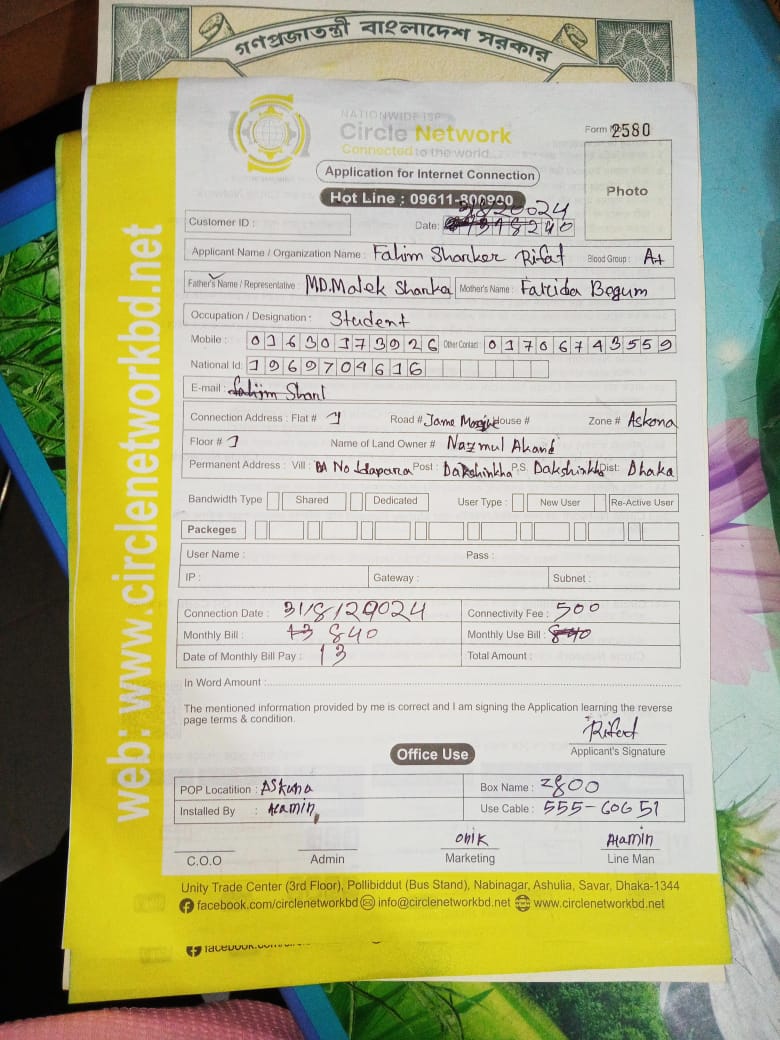 গণপ্রজাতন্ত্রী বাংলাদেশ সরকার
NATIONWIDE ISP
Circle Network
Connected to the world...
Form 2580
Application for Internet Connection
Photo
Hot Line : 09611-800900
Customer ID :
Date:
Applicant Name / Organization Name : Fahim Sharker Rifat Blood Group : A+
Father's Name / Representative : MD.Malek Sharka Mother's Name : Farida Begum
Occupation / Designation : Student
Mobile : 01630173926 Other Contact : 01706743559
National Id: 1969704616
E-mail :
Connection Address : Flat # Road # Jame House # Zone # Askona
Floor # Name of Land Owner # Nazmul Akand
Permanent Address : Vill : No Post : Dakshinkha P.S. Dakshinkha Dist: Dhaka
Bandwidth Type Shared Dedicated User Type : New User Re-Active User
Packeges
User Name : Pass :
IP : Gateway : Subnet :
Connection Date : 31/8/2024 Connectivity Fee : 500
Monthly Bill : 840 Monthly Use Bill :
Date of Monthly Bill Pay : 13 Total Amount :
In Word Amount :
The mentioned information provided by me is correct and I am signing the Application learning the reverse
page terms & condition.
Rifat
Applicant's Signature
Office Use
POP Locatition : Askona Box Name : 2800
Installed By : Alamin Use Cable : 555-60651
Onik Alamin
C.O.O Admin Marketing Line Man
Unity Trade Center (3rd Floor), Pollibiddut (Bus Stand), Nabinagar, Ashulia, Savar, Dhaka-1344
facebook.com/circlenetworkbd info@circlenetworkbd.net www.circlenetworkbd.net
web: www.circlenetworkbd.net